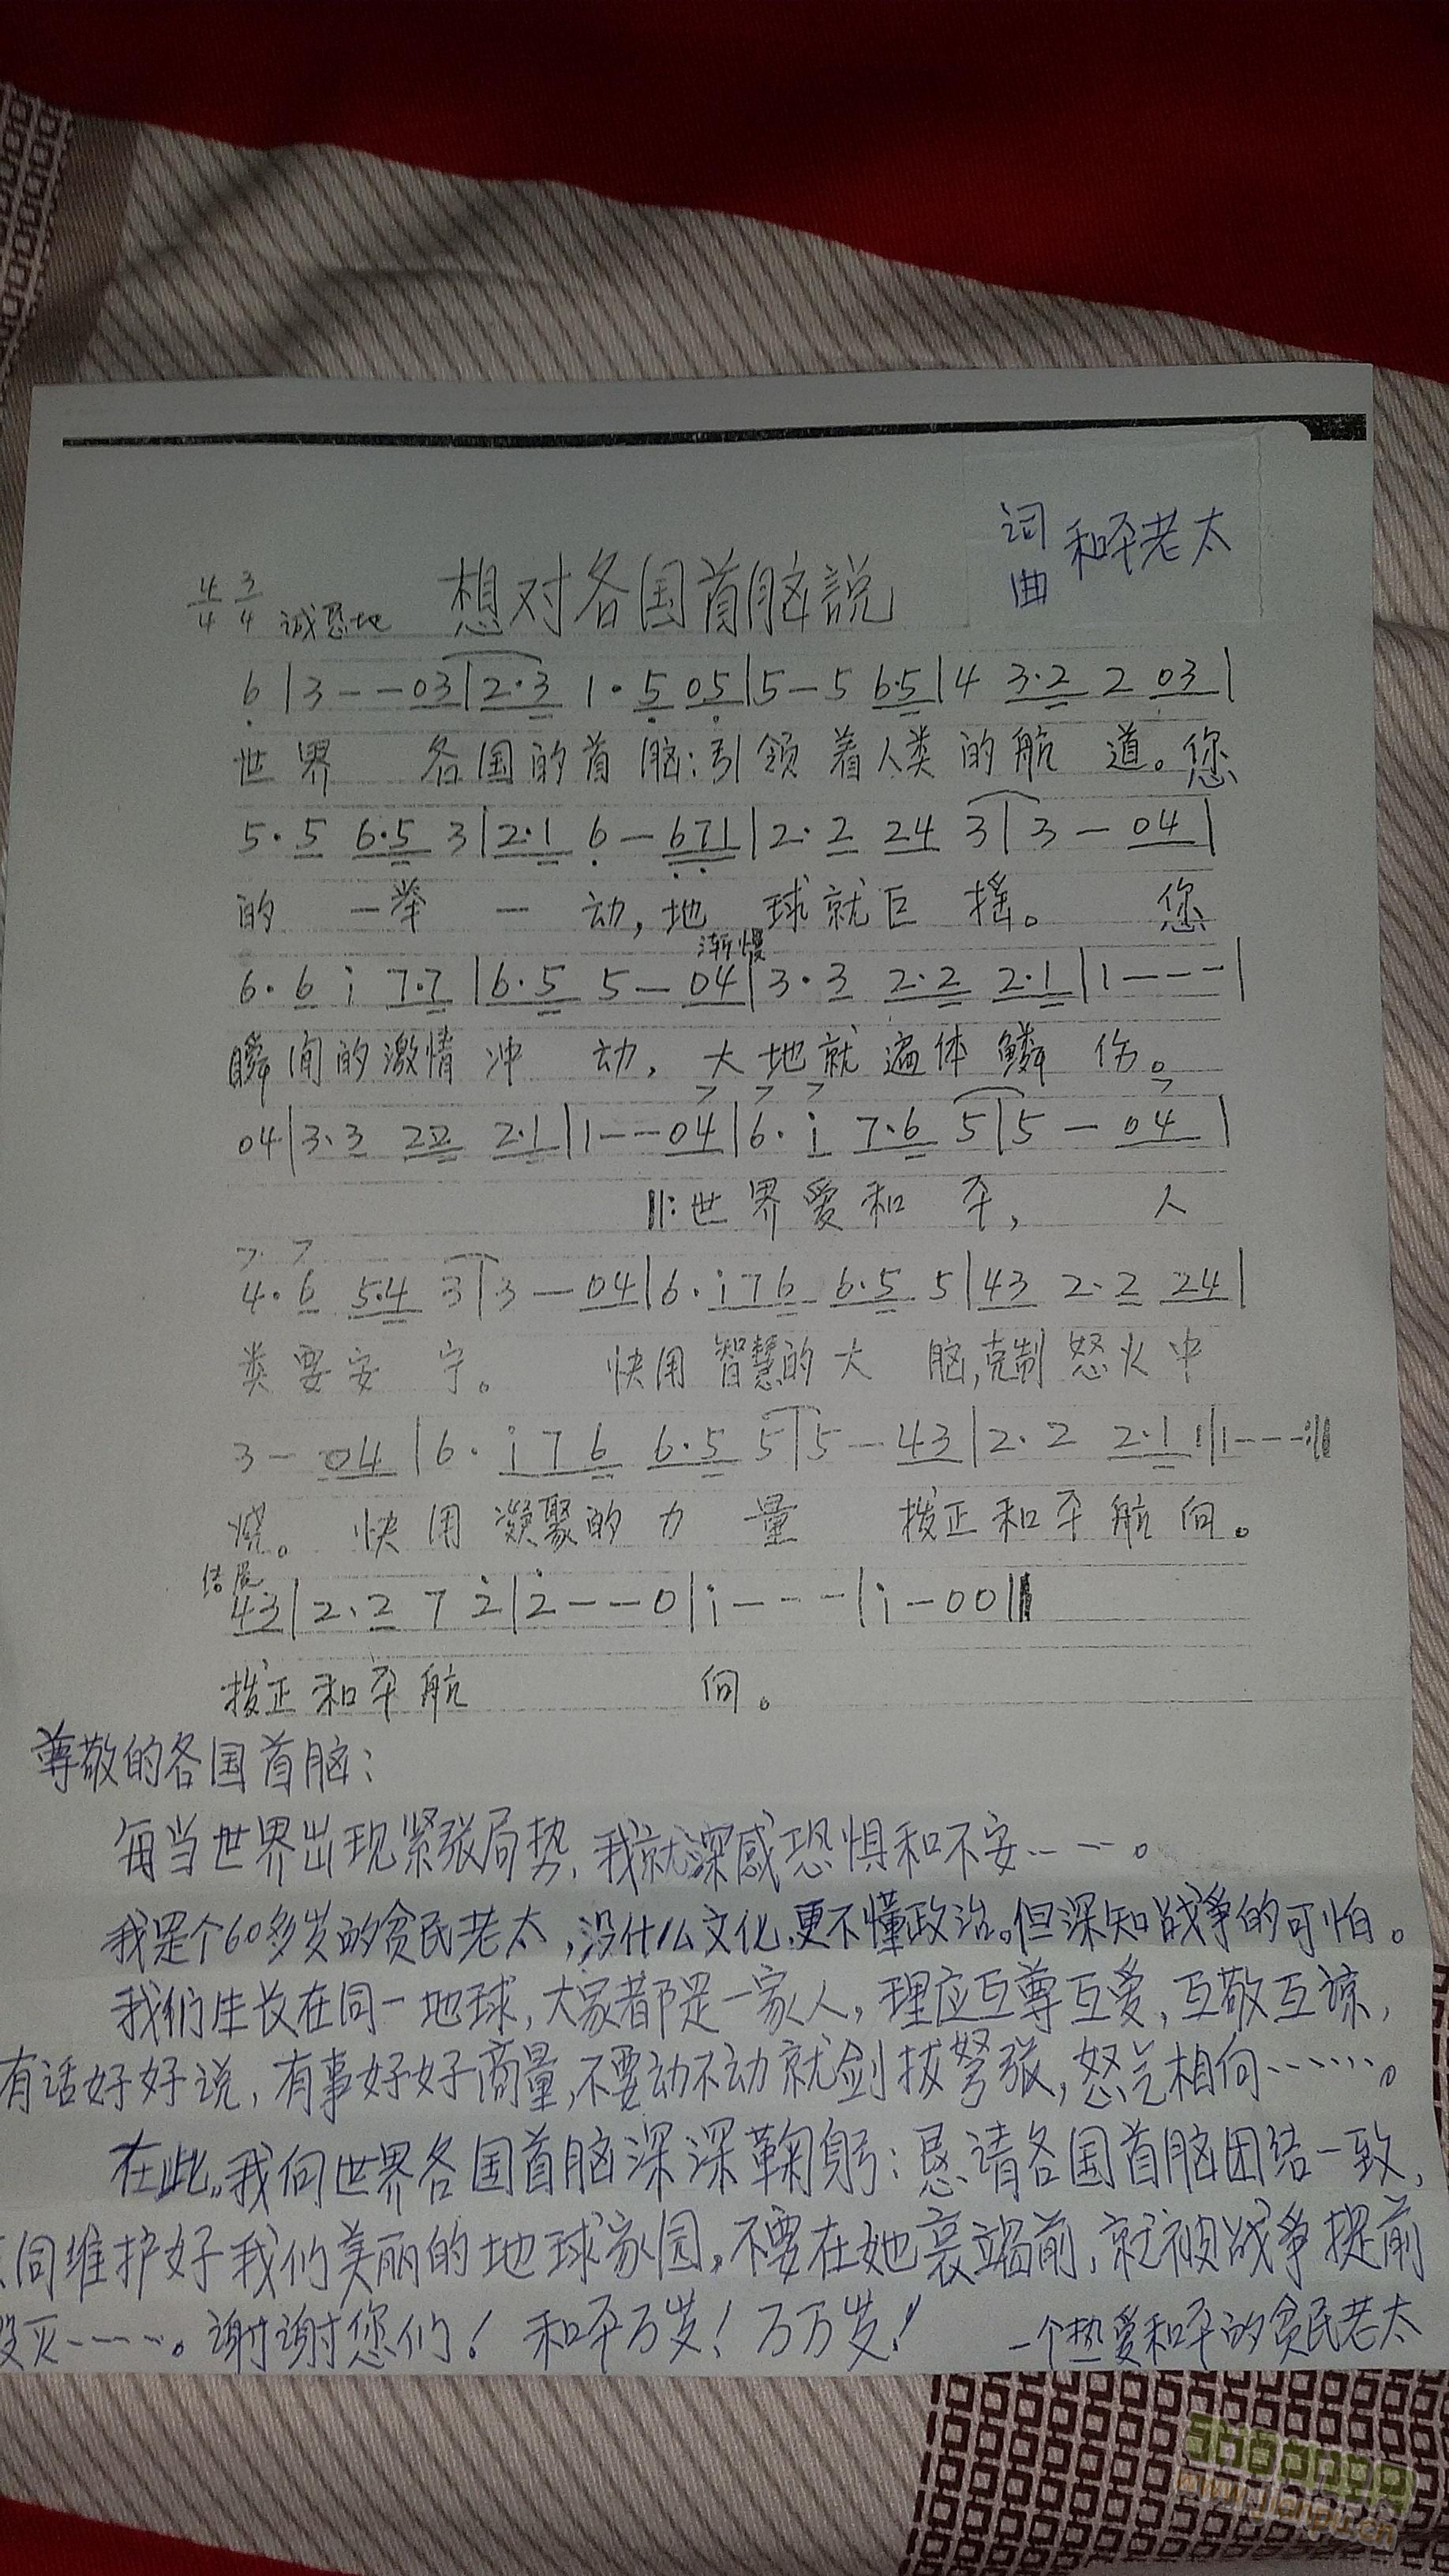 词
曲 和平老太
4/4 3/4 诚恳地 想对各国首脑説
6|3--03|2·3 1·5 05|5-5 6·5|4 3·2 2 03|
世界 各国的首脑:引领着人类的航道。您
5·5 6·5 3|2·1 6-671|2·2 24 3|3-04|
的一举一动,地球就巨摇。您
渐慢
6·6 i 7·7|6·5 5-04|3·3 2·2 2·1|1---|
瞬间的激情冲动,大地就遍体鳞伤。
04|3·3 22 2·1|1--04|6·i 7·6 5|5-04|
‖:世界爱和平,人
4·6 5·4 3|3-04|6·i76 6·5 5|43 2·2 24|
类要安宁。快用智慧的大脑,克制怒火中
3-04|6·i76 6·5 5|5-43|2·2 2·1 1|1---:‖
烧。快用凝聚的力量 拨正和平航向。
结尾
43|2·2 7 2̇|2̇--0|i---|i-00‖
拨正和平航向。
尊敬的各国首脑:
每当世界出现紧张局势,我就深感恐惧和不安……。
我是个60多岁的贫民老太,没什么文化,更不懂政治。但深知战争的可怕。
我们生长在同一地球,大家都是一家人,理应互尊互爱,互敬互谅,
有话好好说,有事好好商量,不要动不动就剑拔弩张,怒气相向……。
在此,我向世界各国首脑深深鞠躬:恳请各国首脑团结一致,
同维护好我们美丽的地球家园,不要在她衰竭前,就被战争提前
毁灭……。谢谢您们!和平万岁!万万岁! 一个热爱和平的贫民老太
www.jianpu.cn